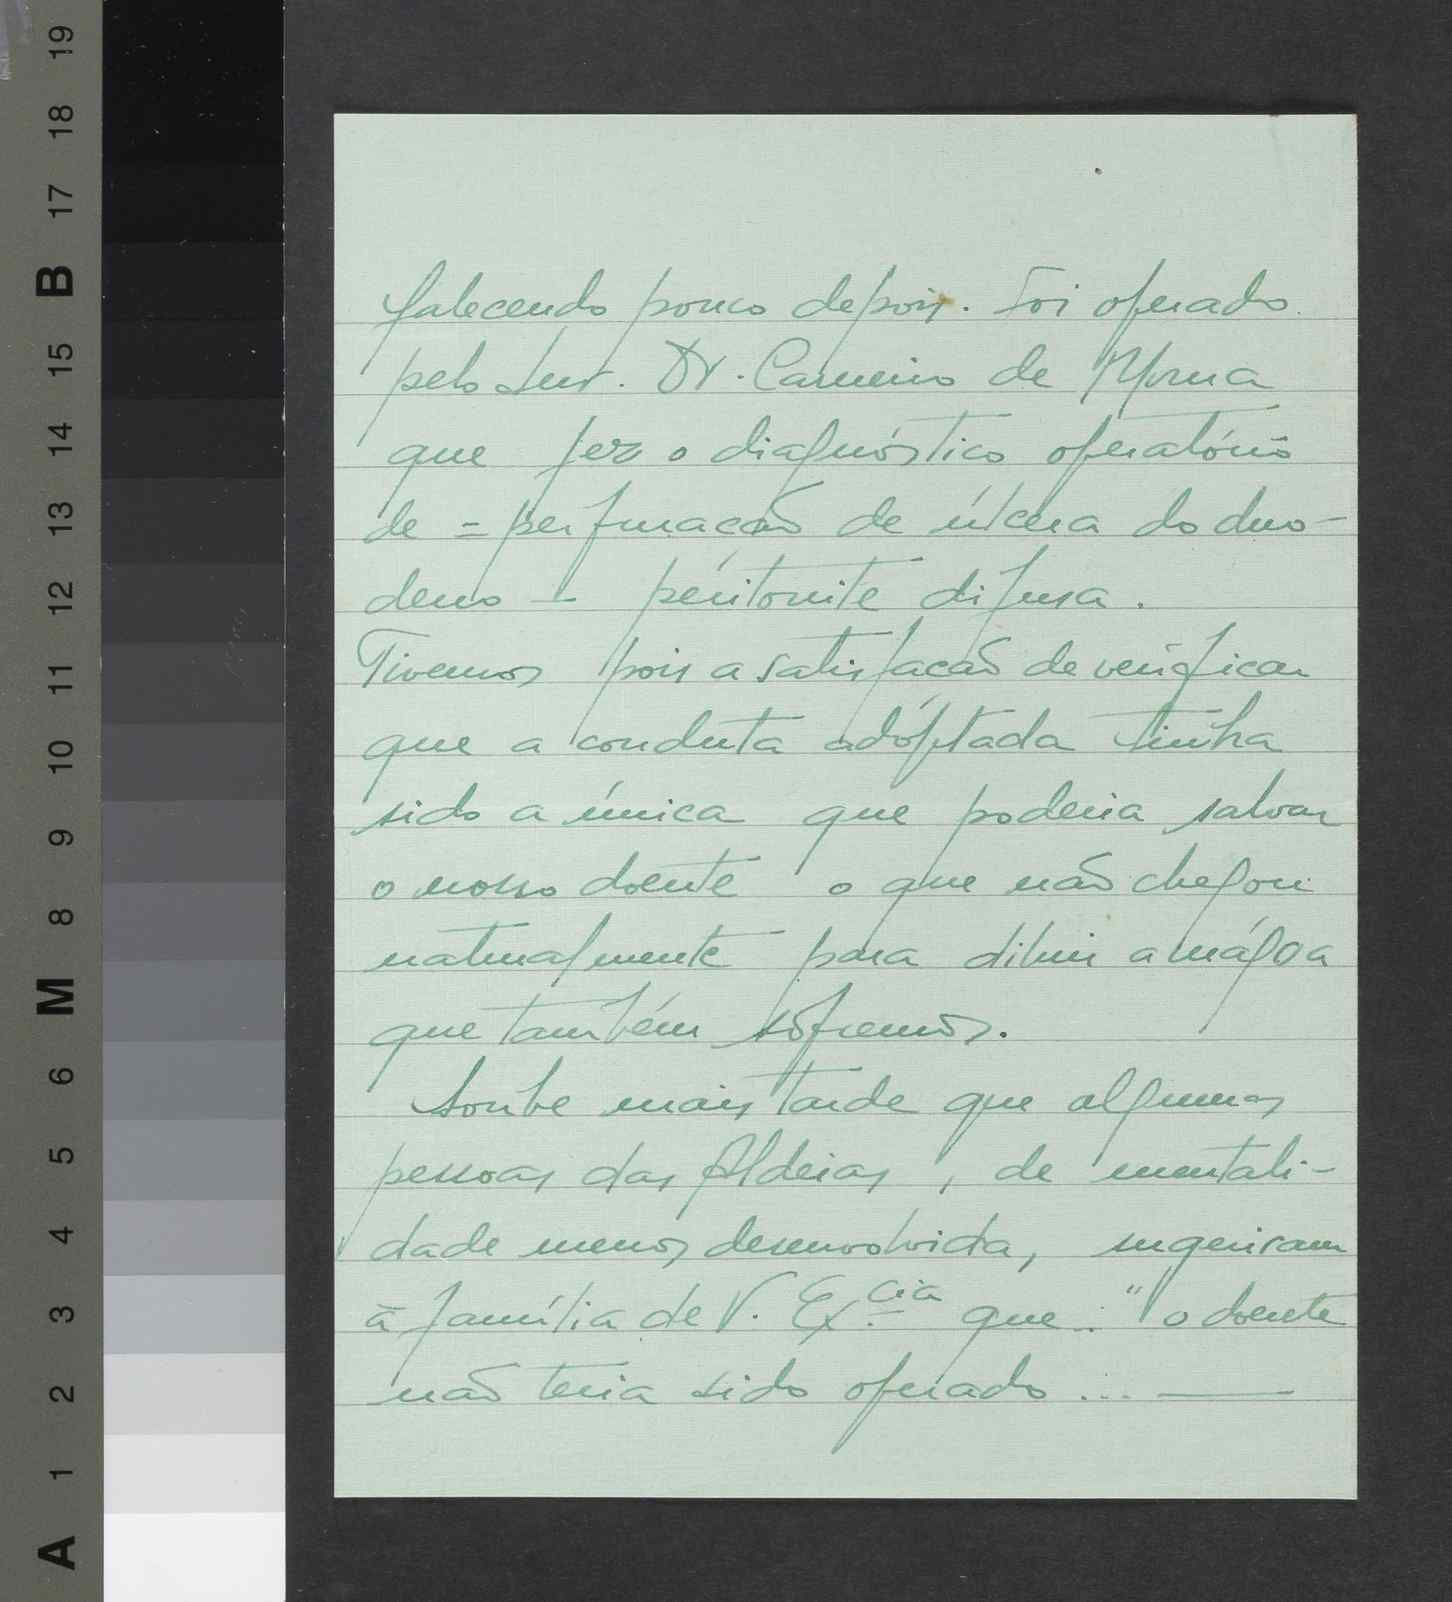 falecendo pouco depois. Foi operado
pelo Snr. Dr. Carneiro de Moura
que fez o diagnóstico operatório
de = perfuração de úlcera do duo-
deno — péritonite difusa.
Tivemos pois a satisfação de verificar
que a conduta adóptada tinha
sido a única que poderia salvar
o nosso doente o que não chegou
naturalmente para diluir a mágoa
que também sofremos.
Soube mais tarde que algumas
pessoas das Aldeias, de mentali-
dade menos desenvolvida, sugeriram
à família de V. Ex.cia que.. " o doente
não teria sido operado ... —
19
18
17
B
15
14
13
12
11
10
9
8
M
6
5
4
3
2
1
A